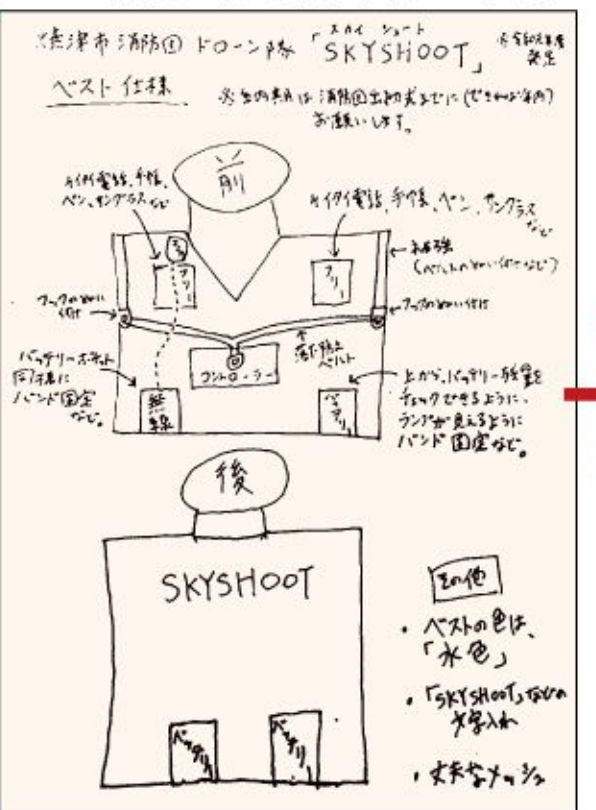 焼津市消防団 ドローン隊 「SKYSHOOT」
スカイ シュート
※令和元年度
発足
ベスト仕様
※ 案内は 消防団出初式までに(できれば年内)
お願いします。
前
ケイタイ電話、手帳、
ペン、サングラスなど
ケイタイ電話、手帳、ペン、サングラス
など
フリー
フリー
補強
(ベルトのぬい付けなど)
フックのぬい
付け
フックのぬい付け
落下防止
ベルト
コントローラー
バッテリーポケット
同様に
バンド固定
など。
無線
バッテリー
上から、バッテリー残量を
チェックできるように、
ランプが見えるように
バンド固定など。
後
SKYSHOOT
バッテリー
バッテリー
その他
・ベストの色は、
「水色」
・「SKYSHOOT」などの
文字入れ
・丈夫なメッシュ